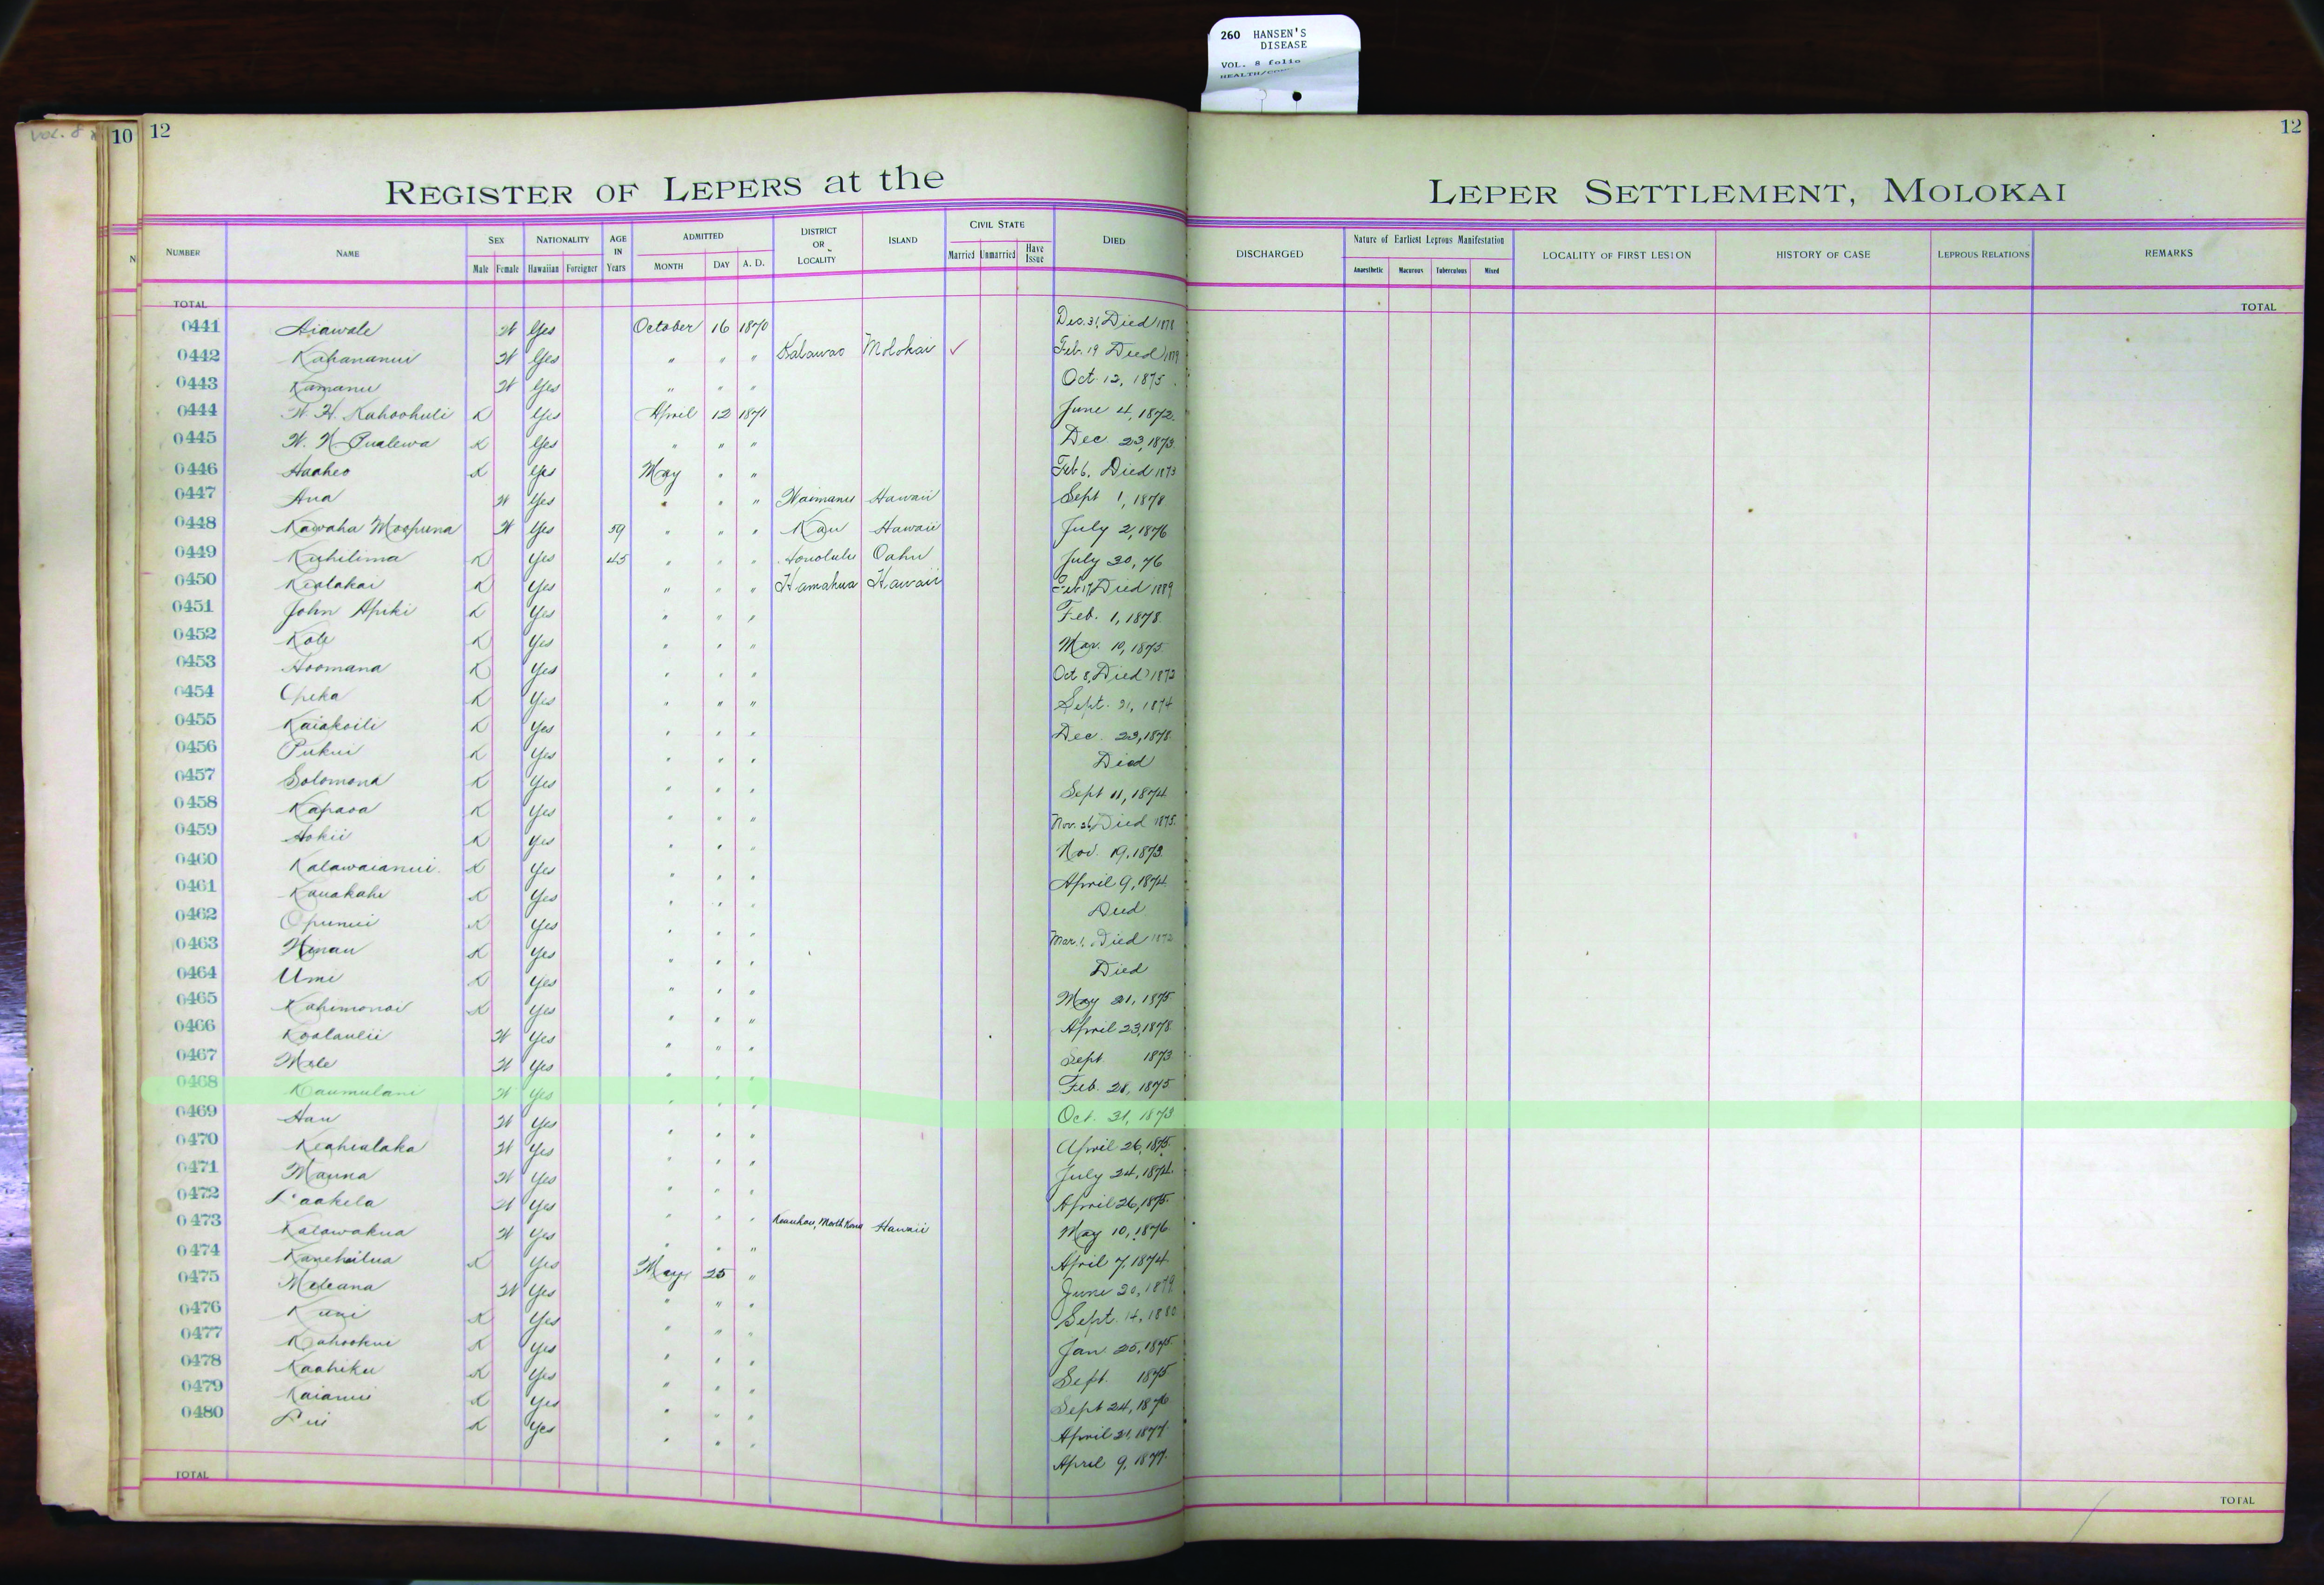 260 HANSEN'S
DISEASE
VOL. 8 folio
VOL. 8
10 12 12
REGISTER OF LEPERS at the LEPER SETTLEMENT, MOLOKAI
NUMBER NAME SEX Male Female NATIONALITY Hawaiian Foreigner AGE IN Years ADMITTED MONTH DAY A. D. DISTRICT OR LOCALITY ISLAND CIVIL STATE Married Unmarried Have Issue DIED DISCHARGED Nature of Earliest Leprous Manifestation Anaesthetic Macurous Tuberculous Mixed LOCALITY OF FIRST LESION HISTORY OF CASE LEPROUS RELATIONS REMARKS
TOTAL TOTAL
0441 Aiawale W Yes October 16 1870 Dec. 31, Died 1878
0442 Kahananui W Yes " " " Kalawao Molokai ✓ Feb. 19 Died 1879
0443 Kamanu W Yes " " " Oct. 12, 1875
0444 W. H. Kahoohuli K Yes April 12 1871 June 4, 1872
0445 W. N. Pualewa K Yes " " " Dec 23, 1873
0446 Haaheo K Yes May " " Feb 6, Died 1873
0447 Ana W Yes " " " Waimanu Hawaii Sept 1, 1878
0448 Kawaha Moopuna W Yes 59 " " " Kau Hawaii July 2, 1876
0449 Kuhilima K Yes 45 " " " Honolulu Oahu July 30, 76
0450 Kealakai K Yes " " " Hamakua Hawaii Feb 17, Died 1889
0451 John Apiki K Yes " " " Feb. 1, 1878
0452 Kole K Yes " " " Mar. 10, 1875
0453 Hoomana K Yes " " " Oct 8, Died 1873
0454 Opeka K Yes " " " Sept. 21, 1874
0455 Kaiakoili K Yes " " " Dec. 23, 1878
0456 Pukui K Yes " " " Died
0457 Solomona K Yes " " " Sept 11, 1874
0458 Kapaoa K Yes " " " Nov. 26, Died 1875
0459 Hokii K Yes " " " Nov. 19, 1873
0460 Kalawaianui K Yes " " " April 9, 1874
0461 Kauakahi K Yes " " " Died
0462 Opunui K Yes " " " Mar. 1, Died 1873
0463 Hinau K Yes " " " Died
0464 Umi K Yes " " " May 21, 1875
0465 Kahimonoi K Yes " " " April 23, 1878
0466 Koolaulii W Yes " " " Sept 1873
0467 Mele W Yes " " " Feb. 28, 1875
0468 Kaumulani W Yes " " " Oct. 31, 1873
0469 Hau W Yes " " " April 26, 1875
0470 Keahialaka W Yes " " " July 24, 1874
0471 Mauna W Yes " " " April 26, 1875
0472 Laakela W Yes " " " Keauhou, North Kona Hawaii May 10, 1876
0473 Kalawakua W Yes " " " April 7, 1874
0474 Kanehailua K Yes May 25 " June 20, 1879
0475 Meleana W Yes " " " Sept. 14, 1880
0476 Kuni K Yes " " " Jan 25, 1875
0477 Kahookui K Yes " " " Sept. 1875
0478 Kaahiku K Yes " " " Sept 24, 1876
0479 Kaianui K Yes " " " April 21, 1877
0480 Lui K Yes " " " April 9, 1877
TOTAL TOTAL